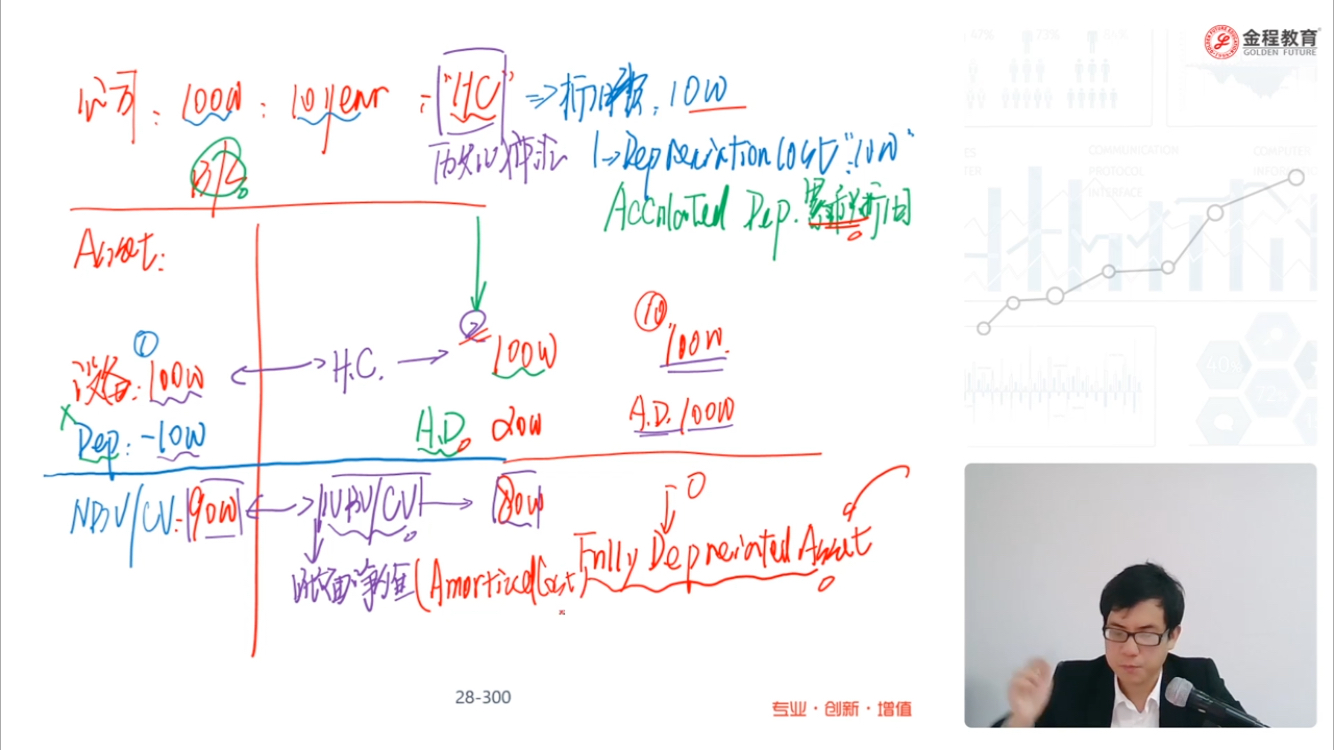 金程教育
GOLDEN FUTURE
公司: 100W: 10year: "HC" => 折旧 : 10W
历史成本 Depreciation Cost: "10W"
B/S Accumlated Dep. 累积折旧
Asset:
① ② ⑩
设备: 100W H.C. 100W 100W.
Dep: -10W A.D. 20W A.D. 100W
NBV/CV: 90W NBV/CV 80W 0
Fully Depreciated Asset
账面净值 (Amortized Cost)
28-300
专业·创新·增值